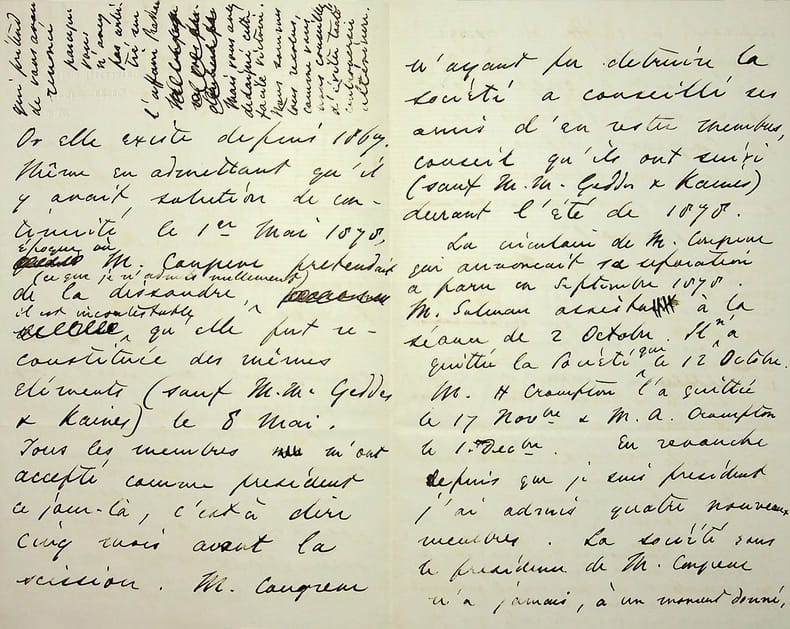 qui prétend
de vous avoir
parce que
vous
n'avez
pas
l'affaire
Mais vous avez
facile victoire.
Nous sommes
tous résolus,
comme vous
nous conseillez
d'éviter toute
controverse
ultérieure.
Or elle existe depuis 1867.
Même en admettant qu'il
y avait solution de con-
tinuité le 1er Mai 1878,
époque où M. Congreve prétendait
(ce que je n'admets nullement)
de la dissoudre,
il est incontestable
qu'elle fut re-
constituée des mêmes
éléments (sauf M.M. Geddes
& Kaines) le 8 Mai.
Tous les membres m'ont
accepté comme président
ce jour-là, c'est à dire
cinq mois avant la
scission. M. Congreve
n'ayant pu détruire la
société a conseillé ses
amis d'en rester membres,
conseil qu'ils ont suivi
(sauf M.M. Geddes & Kaines)
durant l'été de 1878.
La circulaire de M. Congreve
qui annonçait sa séparation
a paru en Septembre 1878.
M. Sulman assista à la
séance de 2 Octobre. Il n'a
quitté la Société que le 12 Octobre.
M. H Crompton l'a quittée
le 17 Novbre & M. A. Crompton
le 1er Decbre. En revanche
depuis que je suis président
j'ai admis quatre nouveaux
membres. La société sous
la présidence de M. Congreve
n'a jamais, à un moment donné,